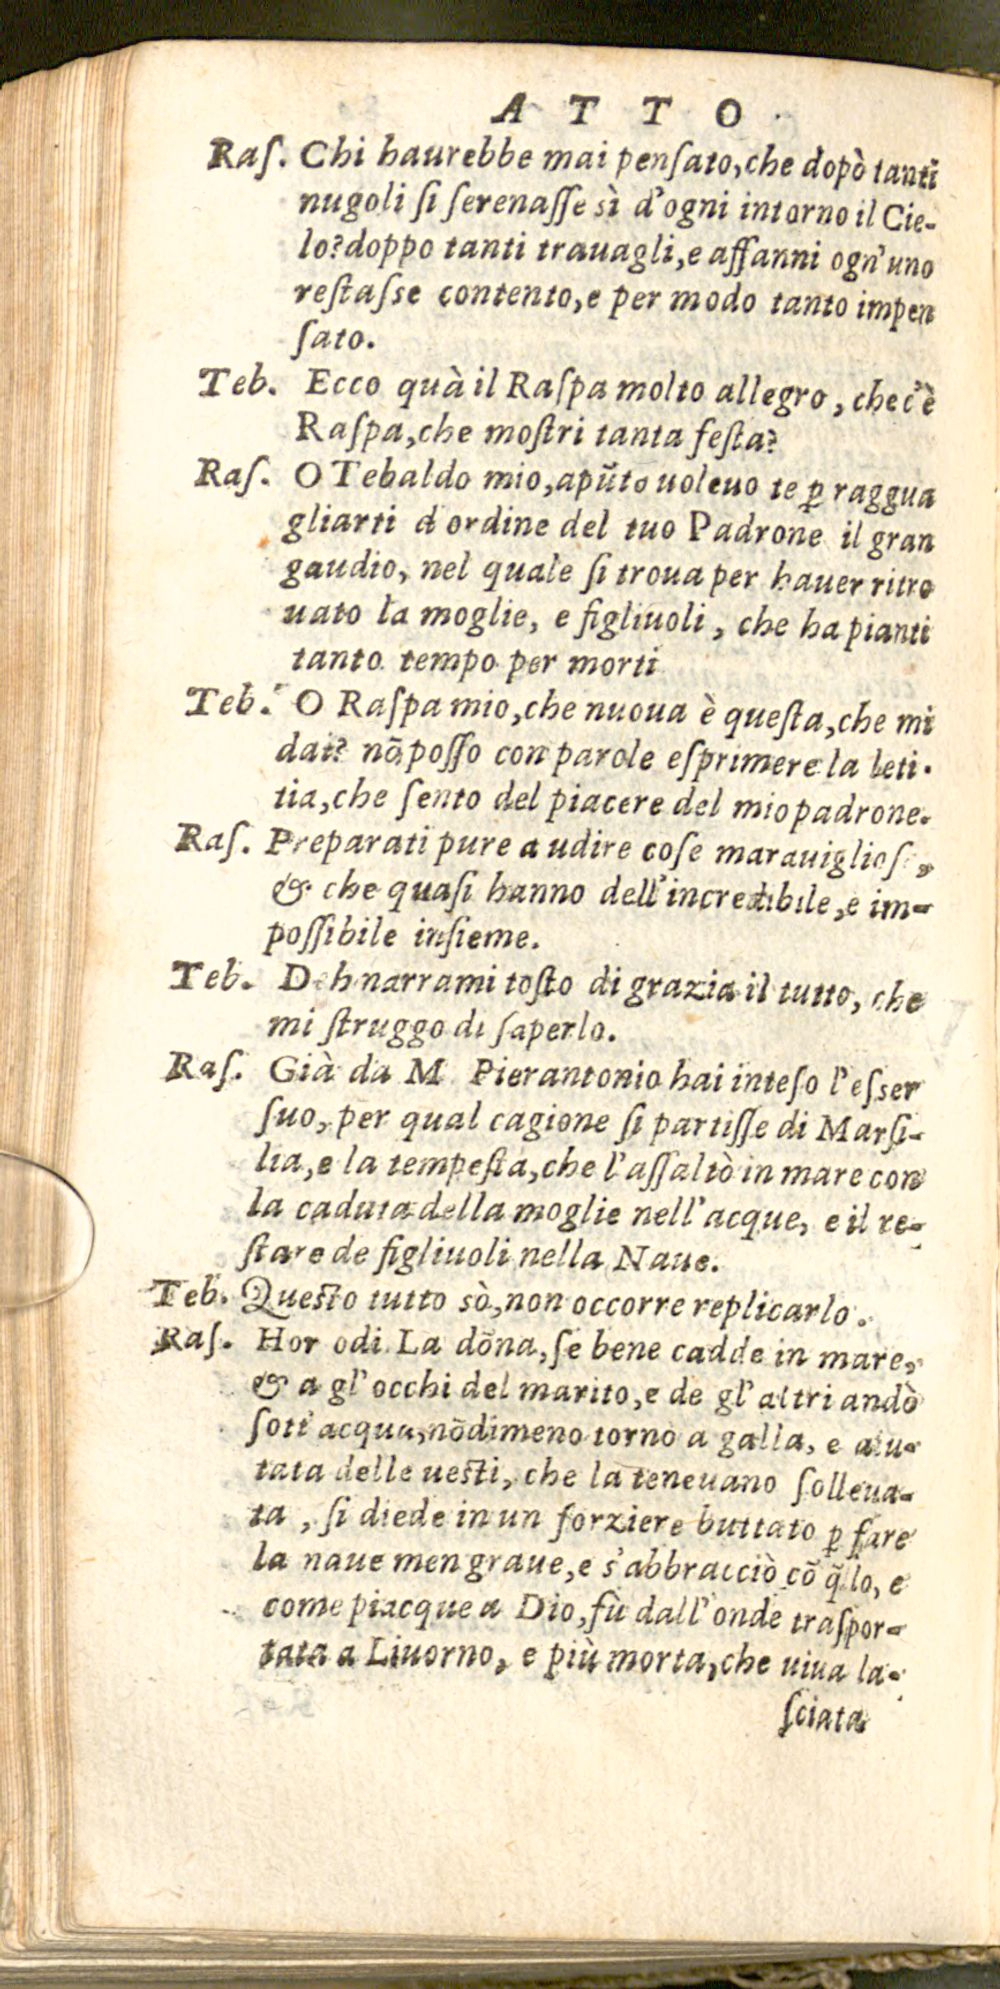 ATTO
Raſ. Chi haurebbe mai penſato, che dopò tanti
nugoli ſi ſerenaſſe sì d'ogni intorno il Cie-
lo? doppo tanti trauagli, e affanni ogn'uno
reſtaſse contento, e per modo tanto impen
ſato.
Teb. Ecco quà il Raſpa molto allegro, che c'è
Raſpa, che moſtri tanta feſta?
Raſ. O Tebaldo mio, apũto uoleuo te ꝑ raggua
gliarti d'ordine del tuo Padrone il gran
gaudio, nel quale ſi troua per hauer ritro
uato la moglie, e figliuoli, che ha pianti
tanto tempo per morti
Teb. O Raſpa mio, che nuoua è queſta, che mi
dai? nõ poſſo con parole eſprimere la leti-
tia, che ſento del piacere del mio padrone.
Raſ. Preparati pure a udire coſe marauiglioſe,
& che quaſi hanno dell'incredibile, e im-
poſſibile inſieme.
Teb. Deh narrami toſto di grazia il tutto, che
mi ſtruggo di ſaperlo.
Raſ. Già da M Pierantonio hai inteſo l'eſser
ſuo, per qual cagione ſi partiſſe di Marſi-
lia, e la tempeſta, che l'aſſaltò in mare con
la caduta della moglie nell'acque, e il re-
ſtare de figliuoli nella Naue.
Teb. Queſto tutto sò, non occorre replicarlo.
Raſ. Hor odi. La dõna, ſe bene cadde in mare,
& a gl'occhi del marito, e de gl'altri andò
ſott'acqua, nõdimeno tornò a galla, e aiu-
tata delle ueſti, che la teneuano ſolleua-
ta, ſi diede in un forziere buttato ꝑ fare
la naue men graue, e s'abbracciò cõ q̃llo, e
come piacque a Dio, fù dall'onde traſpor-
tata a Liuorno, e più morta, che uiua la-
ſciata